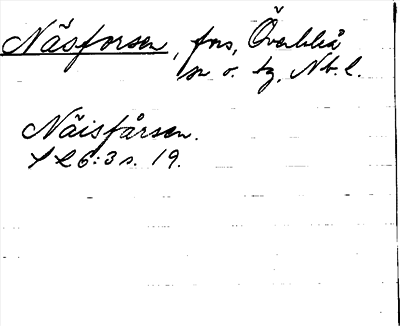 Näsforsen, fors, Överluleå
sn o. tg, Nb. l.
Näisfårsen.
S L 6:3 s. 19.